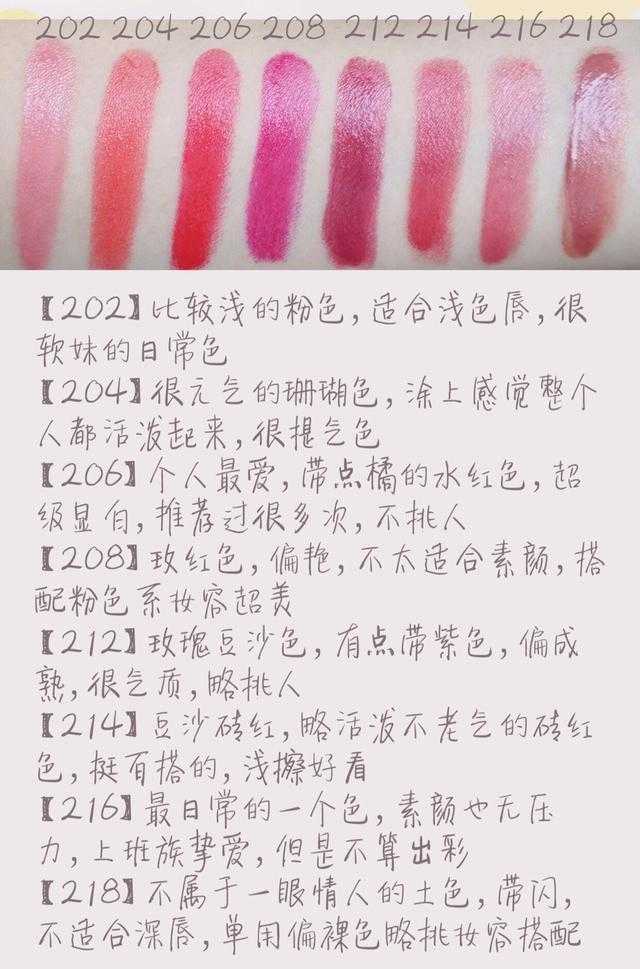 202 204 206 208 212 214 216 218
【202】比较浅的粉色,适合浅色唇,很
软妹的日常色
【204】很元气的珊瑚色,涂上感觉整个
人都活泼起来,很提气色
【206】个人最爱,带点橘的水红色,超
级显白,推荐过很多次,不挑人
【208】玫红色,偏艳,不太适合素颜,搭
配粉色系妆容超美
【212】玫瑰豆沙色,有点带紫色,偏成
熟,很气质,略挑人
【214】豆沙砖红,略活泼不老气的砖红
色,挺百搭的,浅擦好看
【216】最日常的一个色,素颜也无压
力,上班族挚爱,但是不算出彩
【218】不属于一眼情人的土色,带闪,
不适合深唇,单用偏裸色略挑妆容搭配